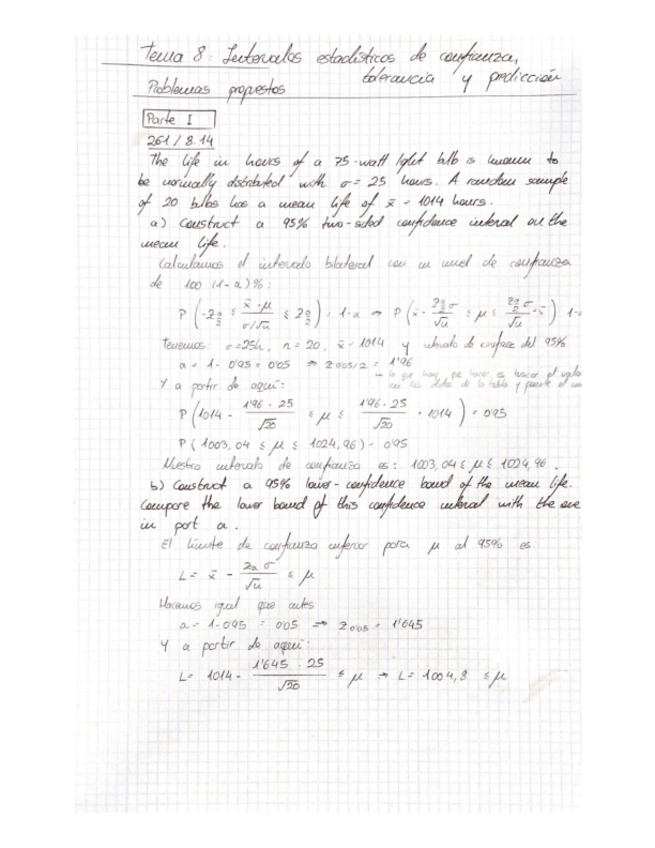 Tema 8: Intervalos estadísticos de confianza,
tolerancia y predicción
Problemas propuestos
Parte I
261 / 8.14
The life in hours of a 75-watt light bulb is known to
be normally distributed with σ = 25 hours. A random sample
of 20 bulbs has a mean life of x̄ = 1014 hours.
a) Construct a 95% two-sided confidence interval on the
mean life.
Calculamos el intervalo bilateral con un nivel de confianza
de 100 (1-α)%:
P(-z_{α/2} ≤ (x̄-μ)/(σ/√n) ≤ z_{α/2}) = 1-α ⇒ P(x̄ - z_{α/2}σ/√n ≤ μ ≤ z_{α/2}σ/√n + x̄) 1-α
Tenemos: σ=25h, n = 20, x̄ = 1014 y intervalo de confianza del 95%
α = 1 - 0'95 = 0'05 ⇒ z_{0'05/2} = 1'96
→ lo que hay que hacer es buscar el
en los datos de la tabla y
Y a partir de aquí:
P(1014 - 1'96 · 25/√20 ≤ μ ≤ 1'96 · 25/√20 + 1014) = 0'95
P(1003,04 ≤ μ ≤ 1024,96) = 0'95
Nuestro intervalo de confianza es: 1003,04 ≤ μ ≤ 1024,96.
b) Construct a 95% lower-confidence bound of the mean life.
Compare the lower bound of this confidence interval with the one
in part a.
El límite de confianza inferior para μ al 95% es:
L = x̄ - z_α σ/√n ≤ μ
Hacemos igual que antes
α = 1 - 0'95 = 0'05 ⇒ z_{0'05} = 1'645
Y a partir de aquí:
L = 1014 - 1'645 · 25/√20 ≤ μ → L = 1004,8 ≤ μ